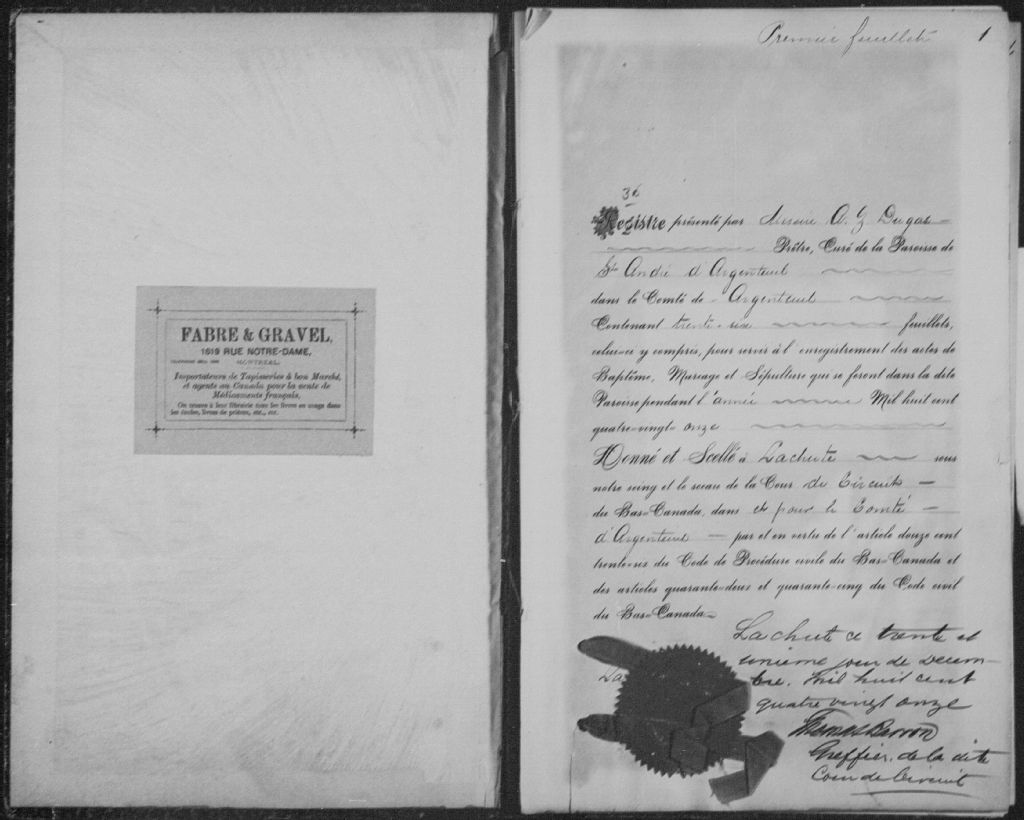 FABRE & GRAVEL,
1619 RUE NOTRE-DAME,
MONTREAL.
Importateurs de Tapisseries à bon Marché,
et agents au Canada pour la vente de
Médicaments français.
On trouve à leur librairie tous les livres en usage dans
les écoles, livres de prières, etc., etc.
Premier feuillet 1
3e
Registre présenté par Messire A. Z Dugas
Prêtre, Curé de la Paroisse de
St André d'Argenteuil
dans le Comté de Argenteuil
Contenant trente-six feuillets,
celui-ci y compris, pour servir à l'enregistrement des actes de
Baptême, Mariage et Sépulture qui se feront dans la dite
Paroisse pendant l'année Mil huit cent
quatre-vingt onze
Donné et Scellé à Lachute sous
notre seing et le sceau de la Cour de Circuit
du Bas-Canada, dans et pour le Comté
d'Argenteuil par et en vertu de l'article douze cent
trente-six du Code de Procédure civile du Bas-Canada et
des articles quarante-deux et quarante-cinq du Code civil
du Bas-Canada
La
Lachute ce trente et
unieme jour de Decem-
bre. Mil huit cent
quatre vingt onze
Thomas Barron
Greffier de la dite
Cour de Circuit